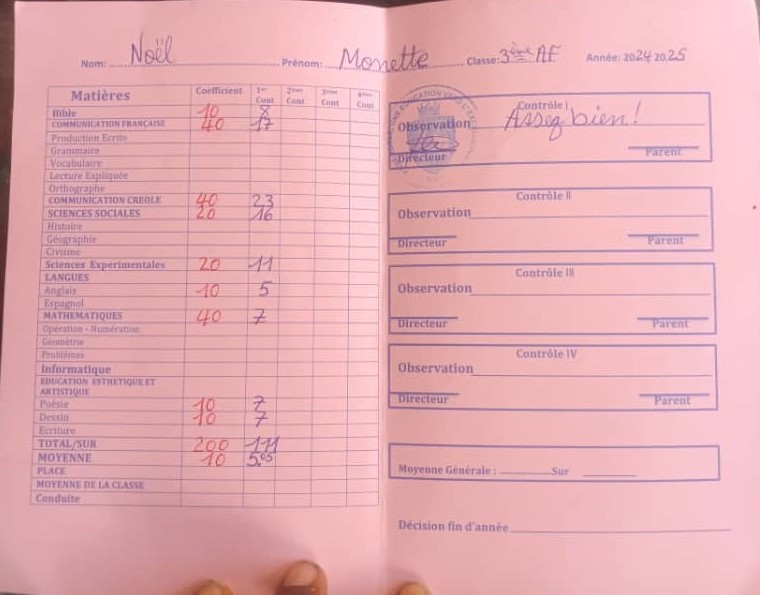 Nom: Noël Prénom: Monette Classe: 3ème AF Année: 2024 2025
Matières Coefficient 1er Cont 2ème Cont 3ème Cont 4ème Cont
Bible 10 8
COMMUNICATION FRANÇAISE 40 17
Production Ecrite
Grammaire
Vocabulaire
Lecture Expliquée
Orthographe
COMMUNICATION CREOLE 40 23
SCIENCES SOCIALES 20 16
Histoire
Géographie
Civisme
Sciences Experimentales 20 11
LANGUES
Anglais 10 5
Espagnol
MATHEMATIQUES 40 7
Opération - Numération
Géométrie
Problèmes
Informatique
EDUCATION ESTHETIQUE ET
ARTISTIQUE
Poésie 10 7
Dessin 10 7
Ecriture
TOTAL/SUR 200 101
MOYENNE 10 5.05
PLACE
MOYENNE DE LA CLASSE
Conduite
Contrôle I
Observation Assez bien!
Directeur Parent
Contrôle II
Observation
Directeur Parent
Contrôle III
Observation
Directeur Parent
Contrôle IV
Observation
Directeur Parent
Moyenne Générale : Sur
Décision fin d'année